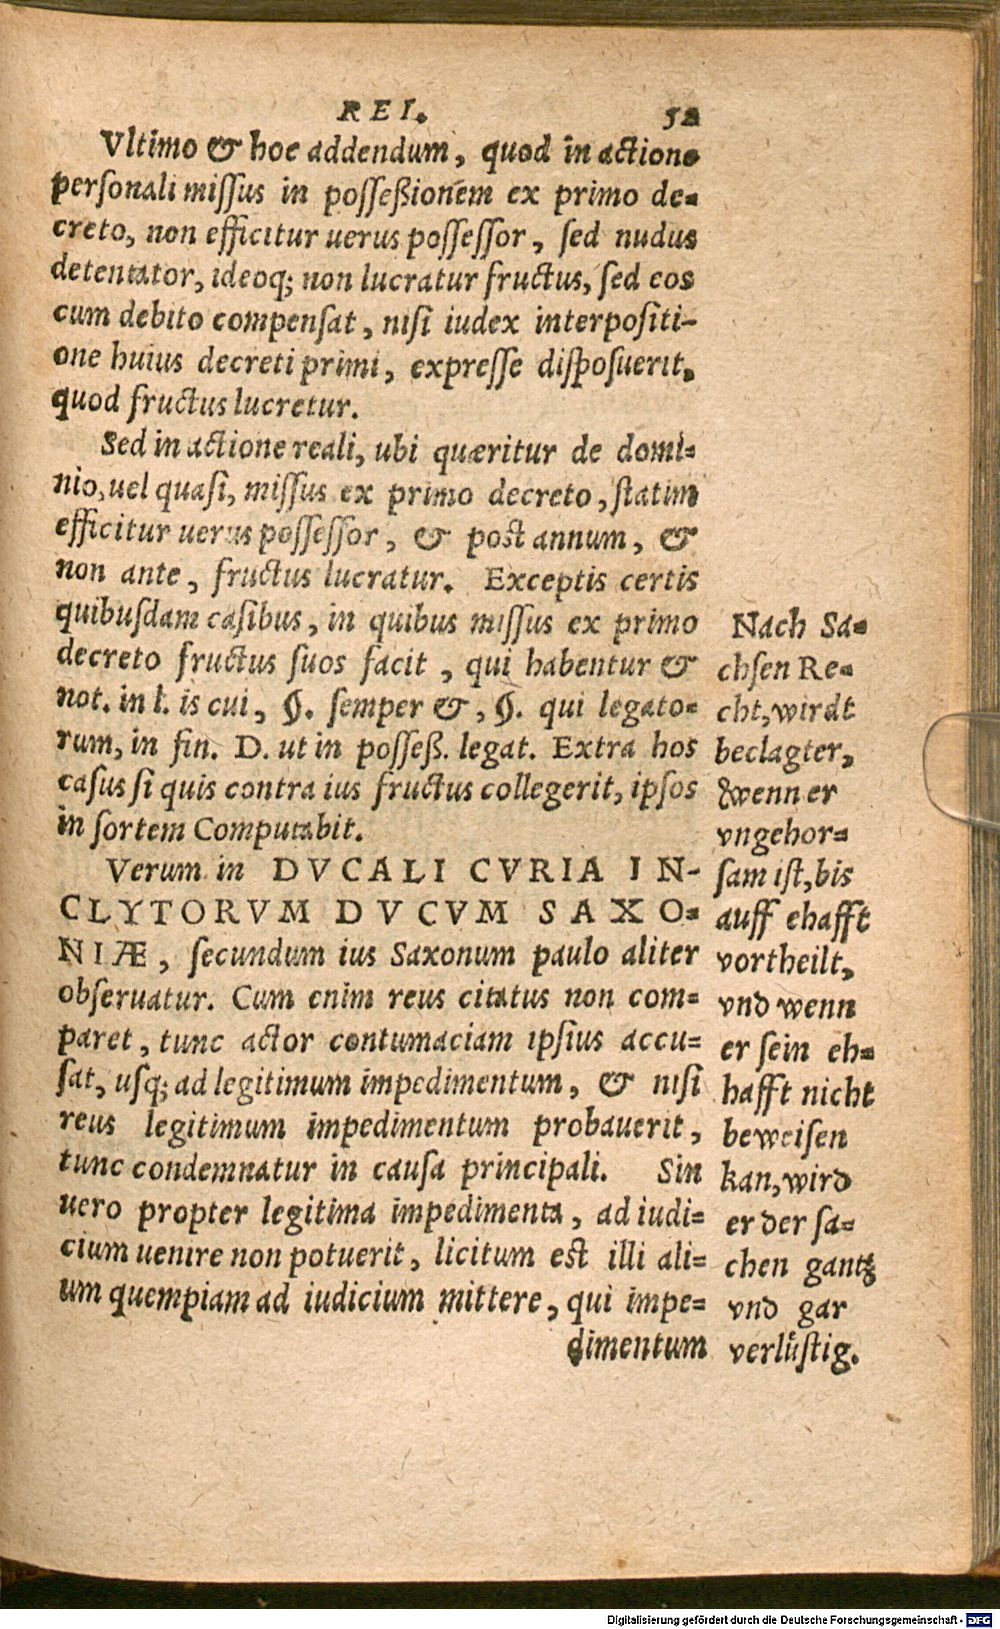 REI. 52
Vltimo & hoc addendum, quod in actione
personali missus in posseßionem ex primo de=
creto, non efficitur uerus possessor, sed nudus
detentator, ideoq; non lucratur fructus, sed eos
cum debito compensat, nisi iudex interpositi-
one huius decreti primi, expresse disposuerit,
quod fructus lucretur.
Sed in actione reali, ubi quæritur de domi=
nio, uel quasi, missus ex primo decreto, statim
efficitur uerus possessor, & post annum, &
non ante, fructus lucratur. Exceptis certis
quibusdam casibus, in quibus missus ex primo
decreto fructus suos facit, qui habentur &
not. in l. is cui, §. semper &, §. qui legato=
rum, in fin. D. ut in posseß. legat. Extra hos
casus si quis contra ius fructus collegerit, ipsos
in sortem Computabit.
Verum in DVCALI CVRIA IN-
CLYTORVM DVCVM SAXO=
NIÆ, secundum ius Saxonum paulo aliter
obseruatur. Cum enim reus citatus non com=
paret, tunc actor contumaciam ipsius accu=
sat, usq; ad legitimum impedimentum, & nisi
reus legitimum impedimentum probauerit,
tunc condemnatur in causa principali. Sin
uero propter legitima impedimenta, ad iudi=
cium uenire non potuerit, licitum est illi ali=
um quempiam ad iudicium mittere, qui impe=
dimentum
Nach Sa=
chsen Re=
cht, wirdt
beclagter,
wenn er
vngehor=
sam ist, bis
auff ehafft
vortheilt,
vnd wenn
er sein eh=
hafft nicht
beweisen
kan, wird
er der sa=
chen gantz
vnd gar
verlüstig.
Digitalisierung gefördert durch die Deutsche Forschungsgemeinschaft - DFG